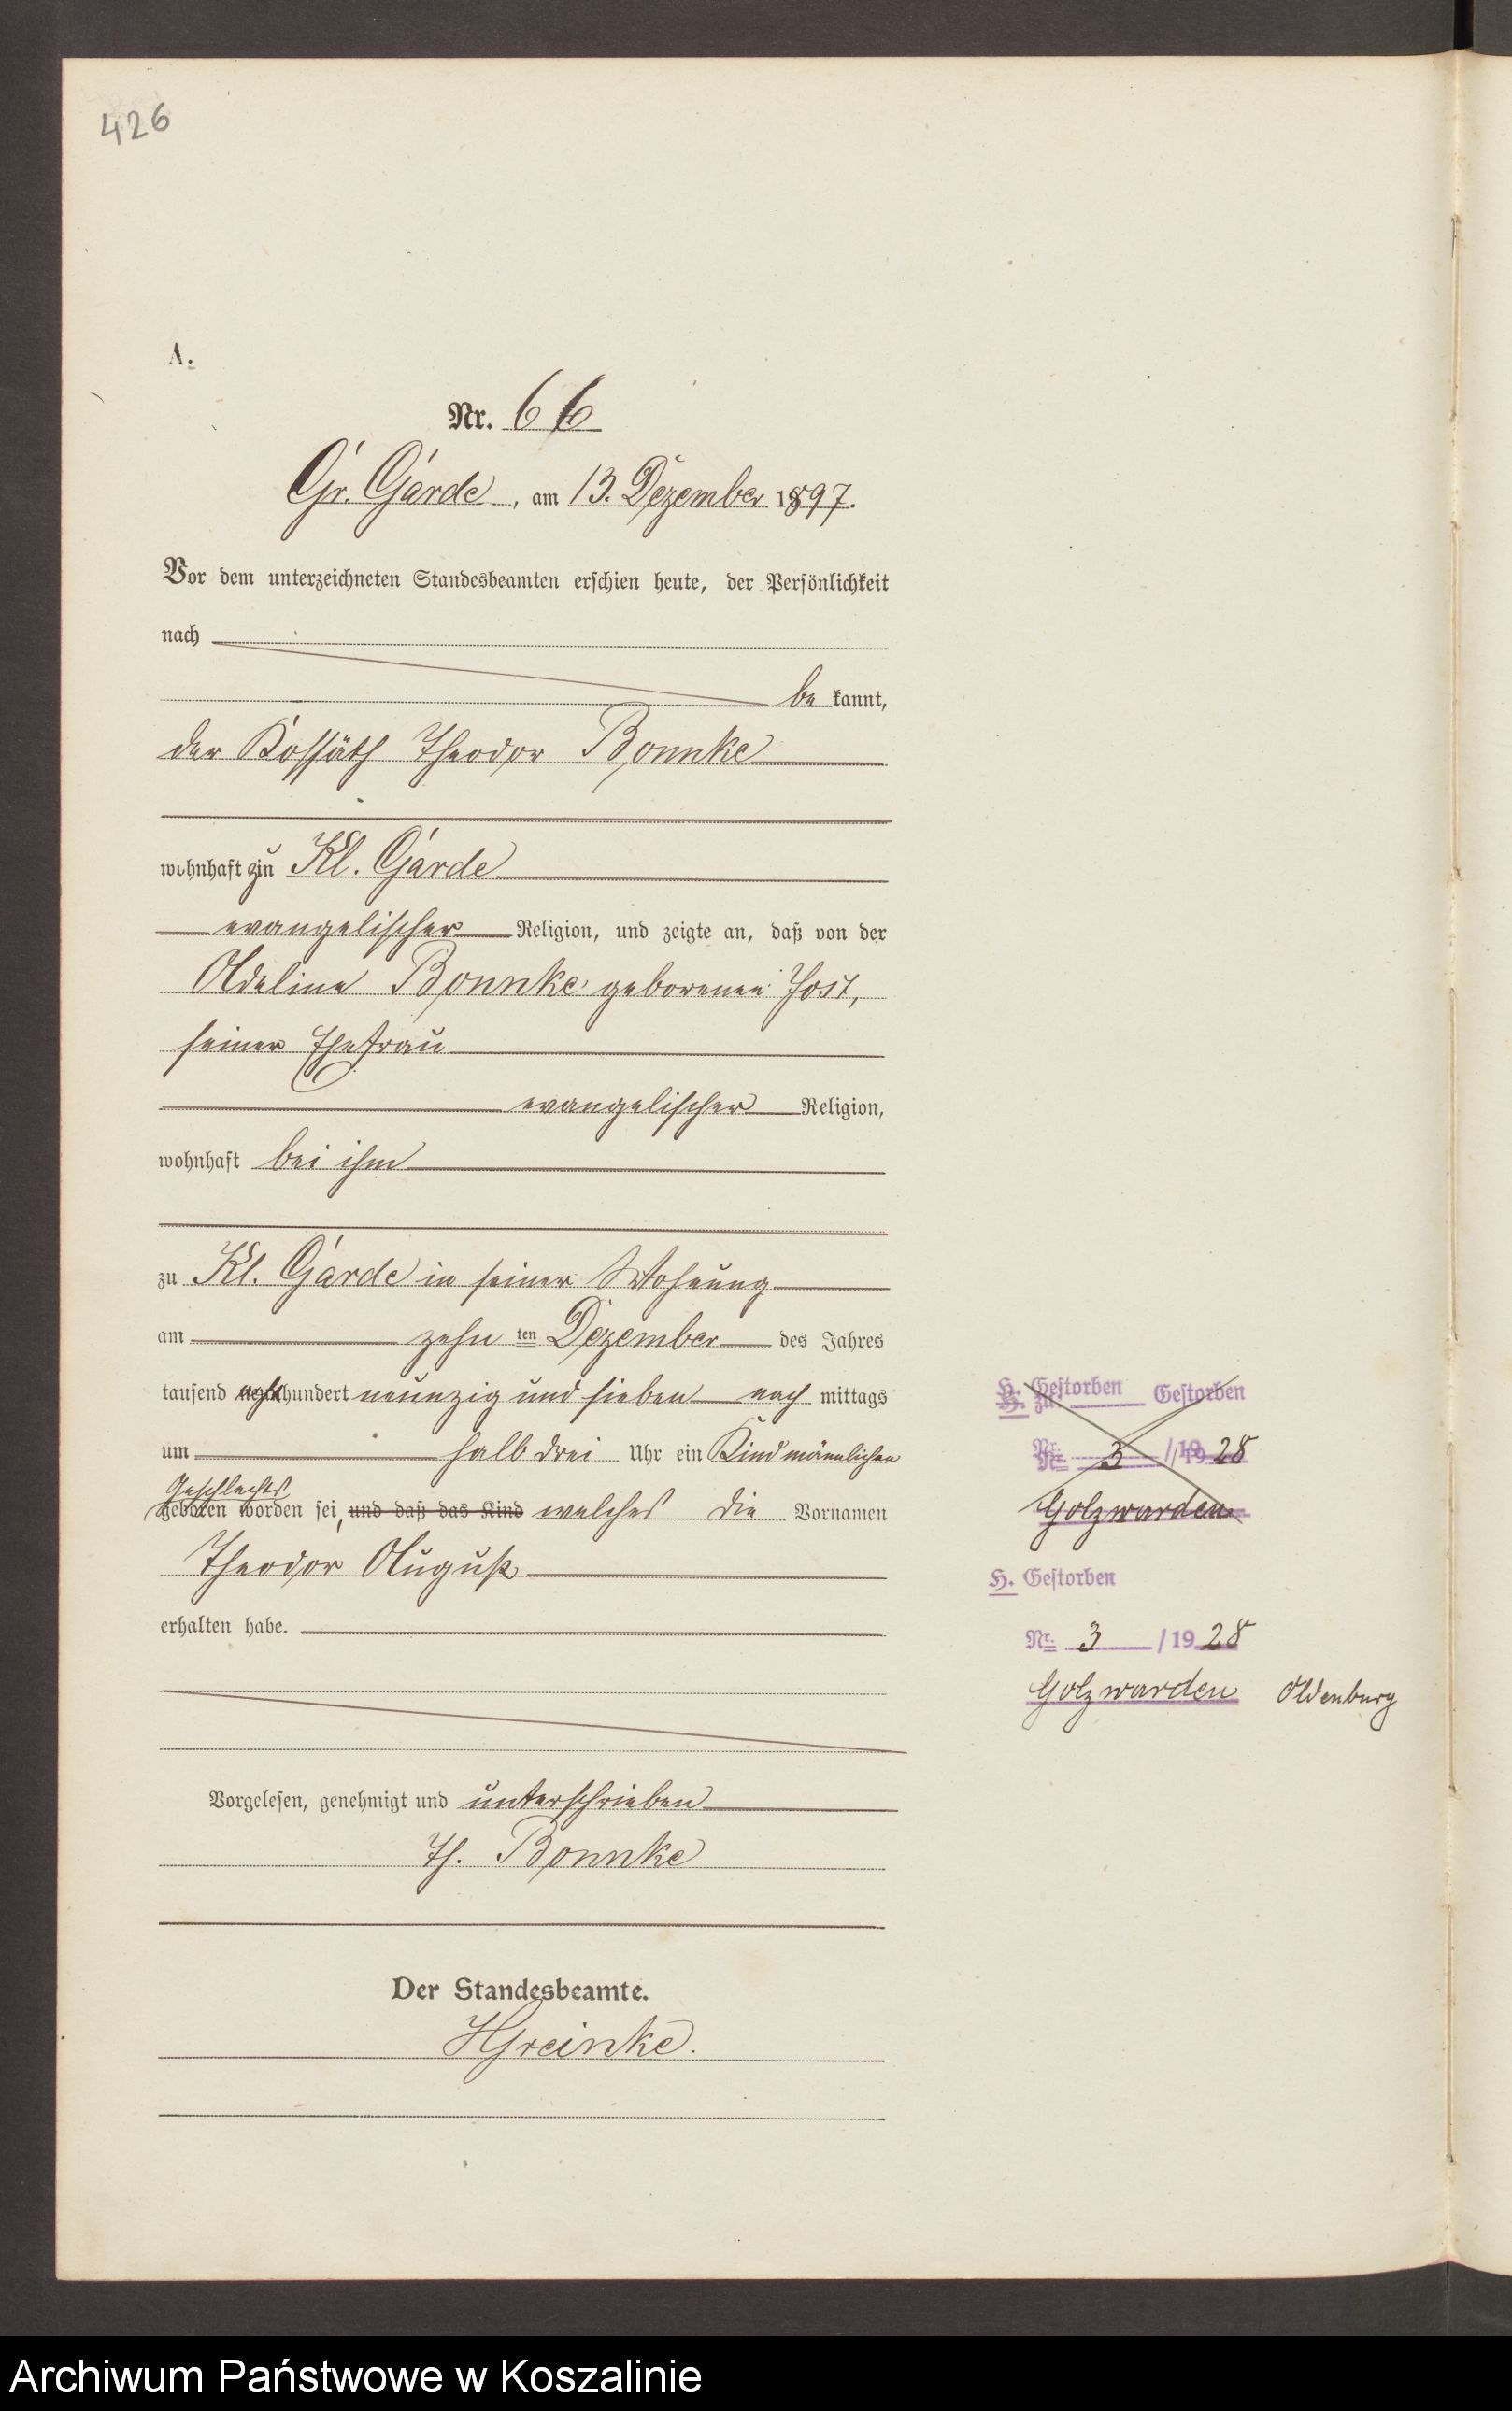 426
A.
Nr. 66
Gr. Garde, am 13. Dezember 1897.
Vor dem unterzeichneten Standesbeamten erschien heute, der Persönlichkeit
nach
be kannt,
der Kossäth Theodor Bonnke
wohnhaft in Kl. Garde
evangelischer Religion, und zeigte an, daß von der
Adeline Bonnke geborenen Jost,
seiner Ehefrau
evangelischer Religion,
wohnhaft bei ihm
zu Kl. Garde in seiner Wohnung
am zehn ten Dezember des Jahres
tausend acht hundert neunzig und sieben nach mittags
um halb drei Uhr ein Kind männlichen
Geschlechts
geboren worden sei, und daß das Kind welches die Vornamen
Theodor August
erhalten habe.
Vorgelesen, genehmigt und unterschrieben
Th. Bonnke
Der Standesbeamte.
HGreinke.
H. Gestorben Gestorben
Nr. 3 /19 28
Golzwarden
H. Gestorben
Nr. 3 /19 28
Golzwarden Oldenburg
Archiwum Państwowe w Koszalinie